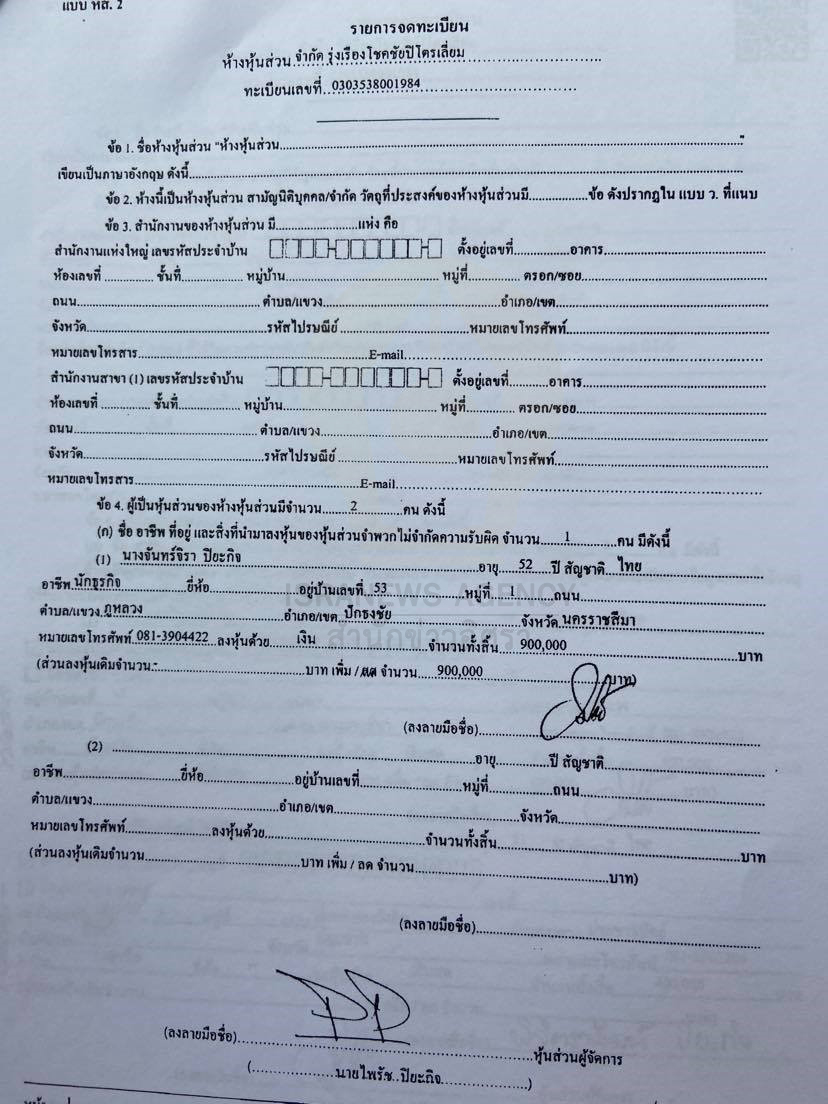 แบบ หส. 2
รายการจดทะเบียน
ห้างหุ้นส่วน จำกัด รุ่งเรืองโชคชัยปิโตรเลี่ยม
ทะเบียนเลขที่ 0303538001984
ข้อ 1. ชื่อห้างหุ้นส่วน "ห้างหุ้นส่วน..........."
เขียนเป็นภาษาอังกฤษ ดังนี้...........
ข้อ 2. ห้างนี้เป็นห้างหุ้นส่วน สามัญนิติบุคคล/จำกัด วัตถุที่ประสงค์ของห้างหุ้นส่วนมี...........ข้อ ดังปรากฏใน แบบ ว. ที่แนบ
ข้อ 3. สำนักงานของห้างหุ้นส่วน มี...........แห่ง คือ
สำนักงานแห่งใหญ่ เลขรหัสประจำบ้าน ตั้งอยู่เลขที่...........อาคาร...........
ห้องเลขที่ ........... ชั้นที่........... หมู่บ้าน........... หมู่ที่........... ตรอก/ซอย...........
ถนน...........ตำบล/แขวง...........อำเภอ/เขต...........
จังหวัด...........รหัสไปรษณีย์ ...........หมายเลขโทรศัพท์...........
หมายเลขโทรสาร...........E-mail...........
สำนักงานสาขา (1) เลขรหัสประจำบ้าน ตั้งอยู่เลขที่...........อาคาร...........
ห้องเลขที่ ........... ชั้นที่........... หมู่บ้าน........... หมู่ที่........... ตรอก/ซอย...........
ถนน...........ตำบล/แขวง...........อำเภอ/เขต...........
จังหวัด...........รหัสไปรษณีย์ ...........หมายเลขโทรศัพท์...........
หมายเลขโทรสาร...........E-mail...........
ข้อ 4. ผู้เป็นหุ้นส่วนของห้างหุ้นส่วนมีจำนวน 2 คน ดังนี้
(ก) ชื่อ อาชีพ ที่อยู่ และสิ่งที่นำมาลงหุ้นของหุ้นส่วนจำพวกไม่จำกัดความรับผิด จำนวน 1 คน มีดังนี้
(1) นางจันทร์จิรา ปิยะกิจ อายุ 52 ปี สัญชาติ ไทย
อาชีพ นักธุรกิจ ยี่ห้อ...........อยู่บ้านเลขที่ 53 หมู่ที่ 1 ถนน...........
ISRANEWS AGENCY
ตำบล/แขวง ภูหลวง อำเภอ/เขต ปักธงชัย จังหวัด นครราชสีมา
สำนักข่าวอิศรา
หมายเลขโทรศัพท์ 081-3904422 ลงหุ้นด้วย เงิน จำนวนทั้งสิ้น 900,000 บาท
(ส่วนลงหุ้นเดิมจำนวน - บาท เพิ่ม / ลด จำนวน 900,000 บาท)
(ลงลายมือชื่อ)...........
(2) ...........อายุ...........ปี สัญชาติ...........
อาชีพ...........ยี่ห้อ...........อยู่บ้านเลขที่...........หมู่ที่...........ถนน...........
ตำบล/แขวง...........อำเภอ/เขต...........จังหวัด...........
หมายเลขโทรศัพท์...........ลงหุ้นด้วย...........จำนวนทั้งสิ้น...........บาท
(ส่วนลงหุ้นเดิมจำนวน...........บาท เพิ่ม / ลด จำนวน...........บาท)
(ลงลายมือชื่อ)...........
(ลงลายมือชื่อ)...........หุ้นส่วนผู้จัดการ
(...........นายไพรัช ปิยะกิจ...........)